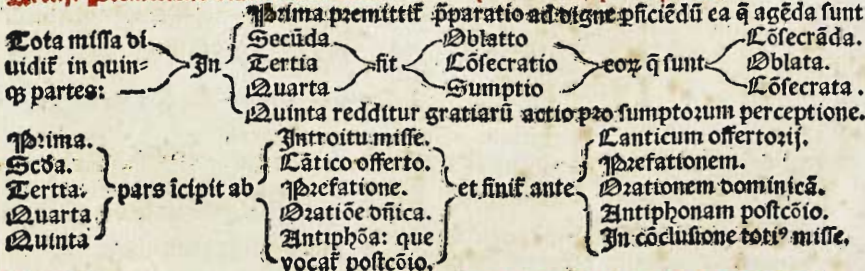 Prima premittit᷑ p̄paratio ad digne ꝑficiēdū ea q̄ agēda ſunt
Tota miſſa di
uidit᷑ in quin⸗
qꝫ partes:
In
Secūda
Tertia
Quarta
fit
Oblatio
Cōſecratio
Sumptio
eoꝝ q̄ ſunt
Cōſecrāda.
Oblata.
Cōſecrata.
Quinta redditur gratiarū actio pro ſumptorum perceptione.
Prima.
Scđa.
Tertia.
Quarta
Quinta
pars īcipit ab
Introitu miſſe.
Cātico offerto.
Prefatione.
Oratiōe dn̄ica.
Antiphōa: que
vocat᷑ poſtcōio.
et finit᷑ ante
Canticum offertorij.
Prefationem.
Orationem dominicā.
Antiphonam poſtcōio.
In cōcluſione totiꝰ miſſe.